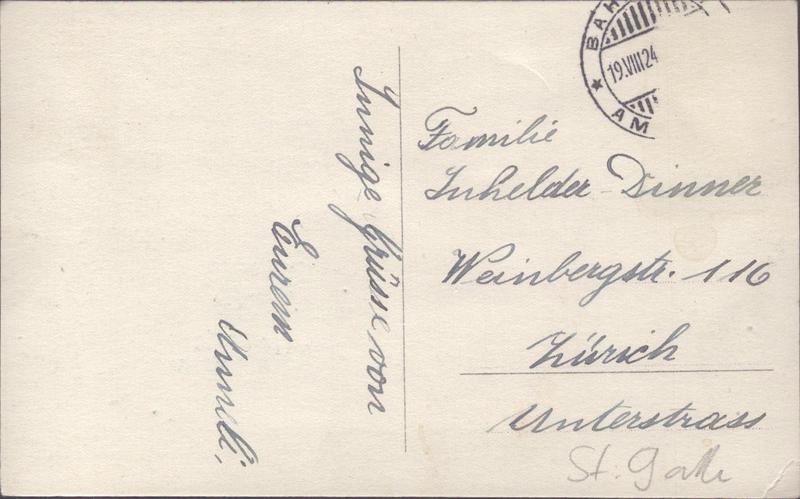 Innige Grüsse von
Eurem
BAH
19.VIII.24
AM
Familie
Inhelder-Dinner
Weinbergstr. 116
Zürich
Unterstrass
St.